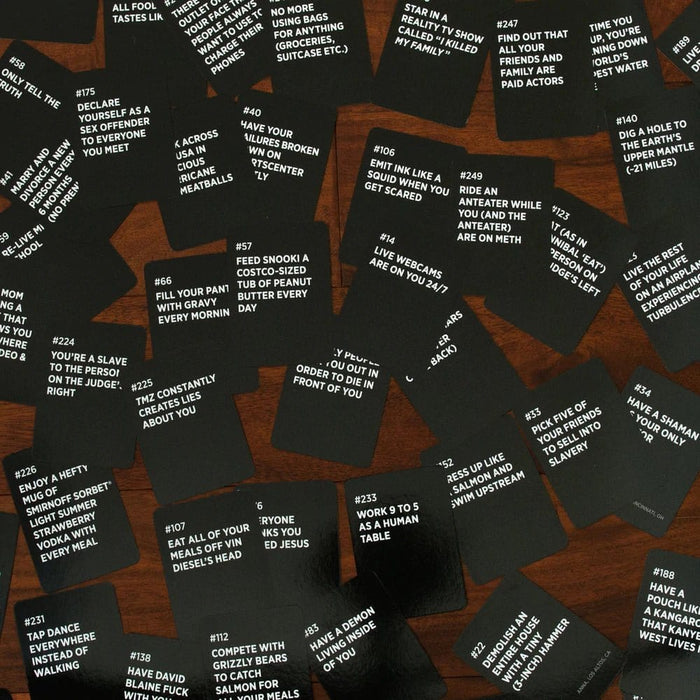 ALL FOOD
TASTES LIK
OUTLET
YOUR FACE TH
PEOPLE ALWAYS
WANT TO USE TO
CHARGE THEIR
PHONES
NO MORE
USING BAGS
FOR ANYTHING
(GROCERIES,
SUITCASE ETC.)
STAR IN A
REALITY TV SHOW
CALLED "I KILLED
MY FAMILY"
#247
FIND OUT THAT
ALL YOUR
FRIENDS AND
FAMILY ARE
PAID ACTORS
TIME YOU
UP, YOU'RE
NING DOWN
ORLD'S
EST WATER
#189
LIVE
#58
ONLY TELL THE
RUTH
#175
DECLARE
YOURSELF AS A
SEX OFFENDER
TO EVERYONE
YOU MEET
K ACROSS
USA IN
CIOUS
RICANE
MEATBALLS
#40
HAVE YOUR
AILURES BROKEN
WN ON
RTSCENTER
LY
#106
EMIT INK LIKE A
SQUID WHEN YOU
GET SCARED
#249
RIDE AN
ANTEATER WHILE
YOU (AND THE
ANTEATER)
ARE ON METH
#140
DIG A HOLE TO
THE EARTH'S
UPPER MANTLE
(~21 MILES)
#41
MARRY AND
DIVORCE A NEW
PERSON EVERY
6 MONTHS
(NO PREN
#123
AT (AS IN
NNIBAL 'EAT')
PERSON ON
DGE'S LEFT
LIVE THE REST
OF YOUR LIFE
ON AN AIRPLAN
EXPERIENCING
TURBULENCE
59
RE-LIVE MI
HOOL
#14
LIVE WEBCAMS
ARE ON YOU 24/7
#57
FEED SNOOKI A
COSTCO-SIZED
TUB OF PEANUT
BUTTER EVERY
DAY
#66
FILL YOUR PANT
WITH GRAVY
EVERY MORNIN
MOM
NG A
THAT
WS YOU
WHERE
DEO &
#224
YOU'RE A SLAVE
TO THE PERSON
ON THE JUDGE'
RIGHT
#225
TMZ CONSTANTLY
CREATES LIES
ABOUT YOU
Y PEOPLE
YOU OUT IN
ORDER TO DIE IN
FRONT OF YOU
ARS
BACK)
#33
PICK FIVE OF
YOUR FRIENDS
TO SELL INTO
SLAVERY
#34
HAVE A SHAMAN
YOUR ONLY
OR
NCINNATI, OH
#226
ENJOY A HEFTY
MUG OF
SMIRNOFF SORBET
LIGHT SUMMER
STRAWBERRY
VODKA WITH
EVERY MEAL
52
RESS UP LIKE
SALMON AND
SWIM UPSTREAM
#107
EAT ALL OF YOUR
MEALS OFF VIN
DIESEL'S HEAD
6
ERYONE
NKS YOU
ED JESUS
#233
WORK 9 TO 5
AS A HUMAN
TABLE
#231
TAP DANCE
EVERYWHERE
INSTEAD OF
WALKING
#138
HAVE DAVID
BLAINE FUCK
WITH YOU
#112
COMPETE WITH
GRIZZLY BEARS
TO CATCH
SALMON FOR
ALL YOUR MEALS
#83
HAVE A DEMON
LIVING INSIDE
OF YOU
#22
DEMOLISH AN
ENTIRE HOUSE
WITH A TINY
(3-INCH) HAMMER
ANNA, LOS ALTOS, CA
#188
HAVE A
POUCH LIKE
A KANGARO
THAT KANYE
WEST LIVES I